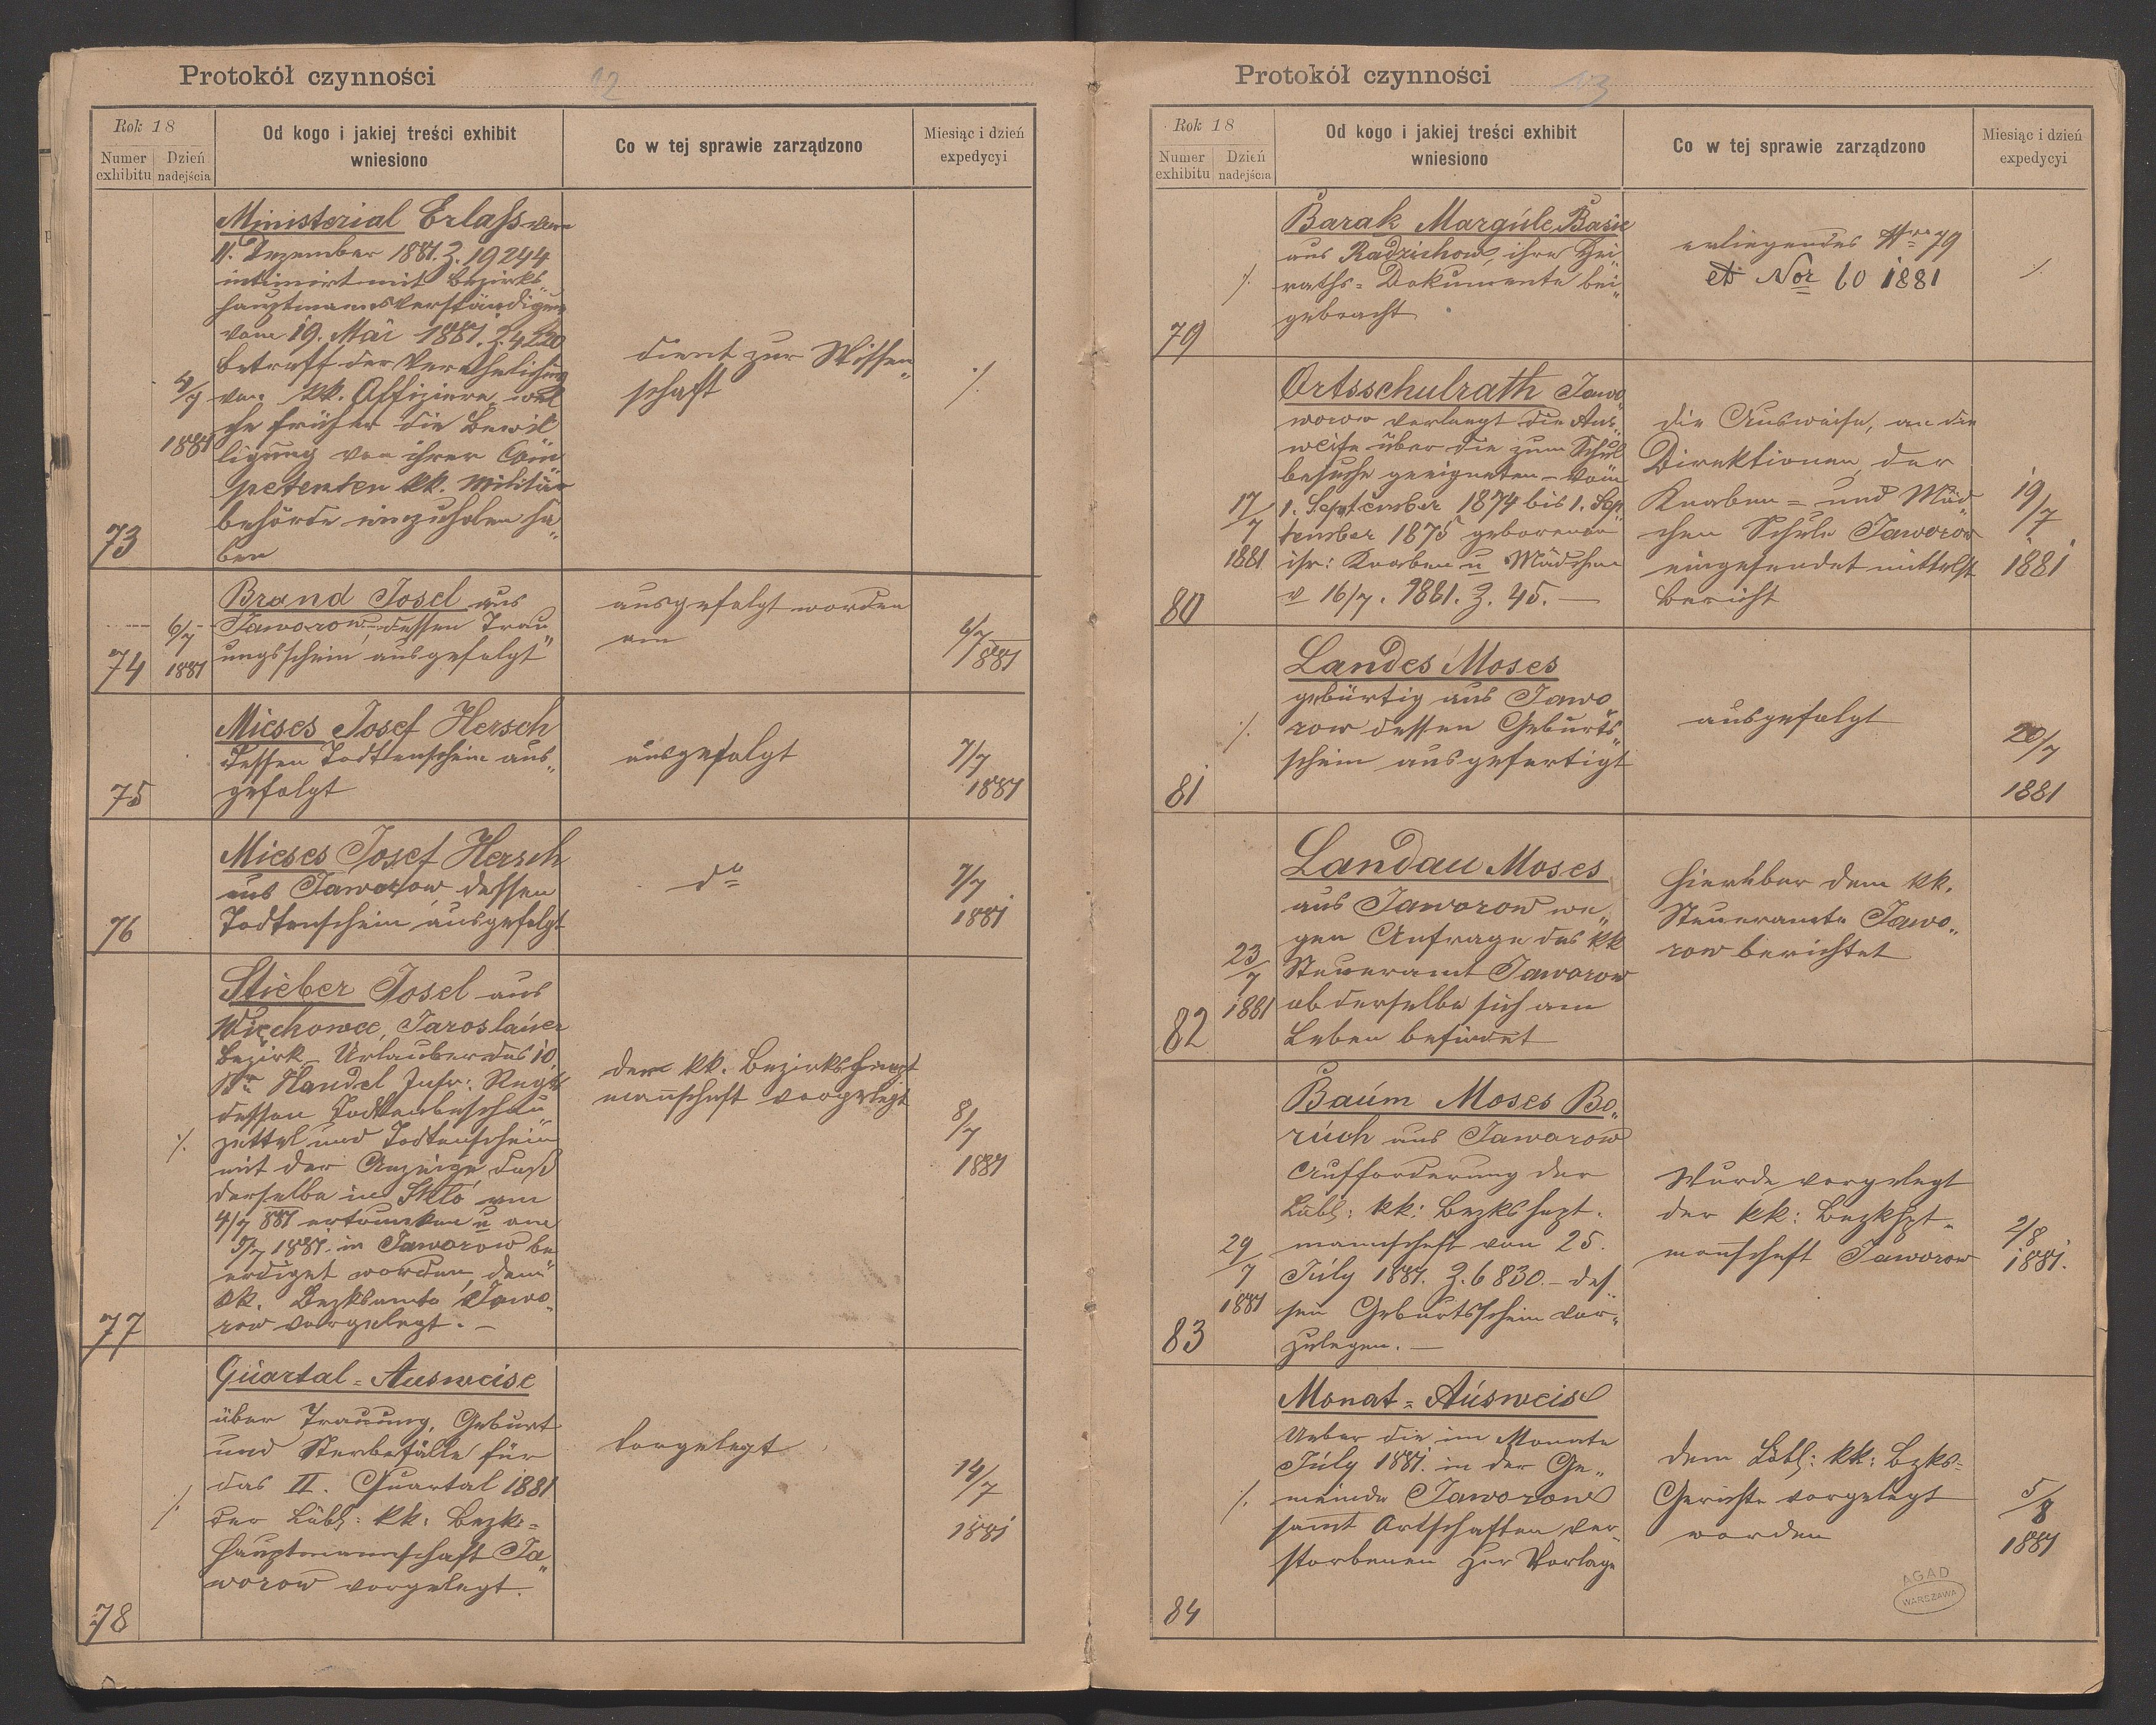 Protokół czynności
12
Rok 18
Numer exhibitu
Dzień nadejścia
Od kogo i jakiej treści exhibit
wniesiono
Co w tej sprawie zarządzono
Miesiąc i dzień
expedycyi
73
4/7
1881
Ministerial Erlaß vom
11. Dezember 1881. Z. 19244
intimirt mit Bezirks
hauptmanns Verständigung
vom 19. Mai 1881. Z. 4220
betreff der Verehelichung
von kk. Offiziere wel
che früher die Bewil
ligung von ihrer Com
petenten kk. Militär
behörde einzuholen ha„
ben
dient zur Wissen„
schaft
./.
74
6/7
1881
Brand Josel aus
Jaworow, dessen Trau„
ungsschein ausgefolgt
ausgefolgt worden
am
6/7
881
75
Mieses Josef Hersch
dessen Todtenschein aus„
gefolgt
ausgefolgt
7/7
1881
76
Mieses Josef Hersch
aus Jaworow dessen
Todtenschein ausgefolgt
dto
7/7
1881
77
./.
Stieber Josel aus
Jaroslauer
Bezirk Urlauber des 10
Handel Infr: Regts
dessen Todtenbeschau„
zettel und Todtenschein
mit der Anzeige, daß
derselbe in Skło am
4/7 881 ertrunken u am
5/7 1881. in Jaworow be
erdiget worden, dem
kk. Bezksamte Jawo„
row vorgelegt. –
der kk. Bezirkshaupt
mannschaft vorgelegt
8/7
1881
78
./.
Quartal = Ausweise
über Trauung, Geburt
und Sterbefälle für
das II. Quartal 1881
der Löbl: kk: Bezks=
hauptmannschaft Ja„
worow vorgelegt.
vorgelegt
14/7
1881
Protokół czynności
13
Rok 18
Numer exhibitu
Dzień nadejścia
Od kogo i jakiej treści exhibit
wniesiono
Co w tej sprawie zarządzono
Miesiąc i dzień
expedycyi
79
./.
Barak Margule Basie
aus Radzichow, ihre Hei„
raths = Dokumente bei„
gebracht
erliegendes Nro 79
et Nor 60 1881
./.
80
17/7
1881
Ortsschulrath Jawo„
worow verlangt die Aus„
weise über die zum Schul
besuche geeigneten – vom
1. September 1874 bis 1. Sep„
tember 1875 geborenen
isr: Knaben u Mädchen
v 16/7. 1881. Z. 45. –
die Ausweise, an die
Direktionen der
Knaben = und Mäd
chen Schule Jaworow
eingesendet mittelst
Bericht
19/7
1881
81
./.
Landes Moses
gebürtig aus Jawo„
row dessen Geburts„
schein ausgefertigt
ausgefolgt
20/7
1881
82
23/7
1881
Landau Moses
aus Jaworow we„
gen Anfrage des kk
Steueramt Jaworow
ob derselbe sich am
Leben befindet
hierüber dem kk.
Steueramte Jawo„
row berichtet
83
29/7
1881
Baum Moses Bo„
ruch aus Jaworow
Aufforderung der
Löbl: kk: Bezkshapt„
mannschaft von 25.
July 1881. Z. 6830. – des„
sen Geburtsschein vor„
zulegen. –
Wurde vorgelegt
der kk: Bezkhpt„
mannschaft Jaworow
2/8
1881.
84
./.
Monat = Ausweis
Ueber die im Monate
July 1881. in der Ge„
meinde Jaworow
sammt Ortschaften ver„
storbenen zur Vorlage
dem Löbl: kk: Bzks=
Gerichte vorgelegt
worden
5/8
1881
AGAD
WARSZAWA